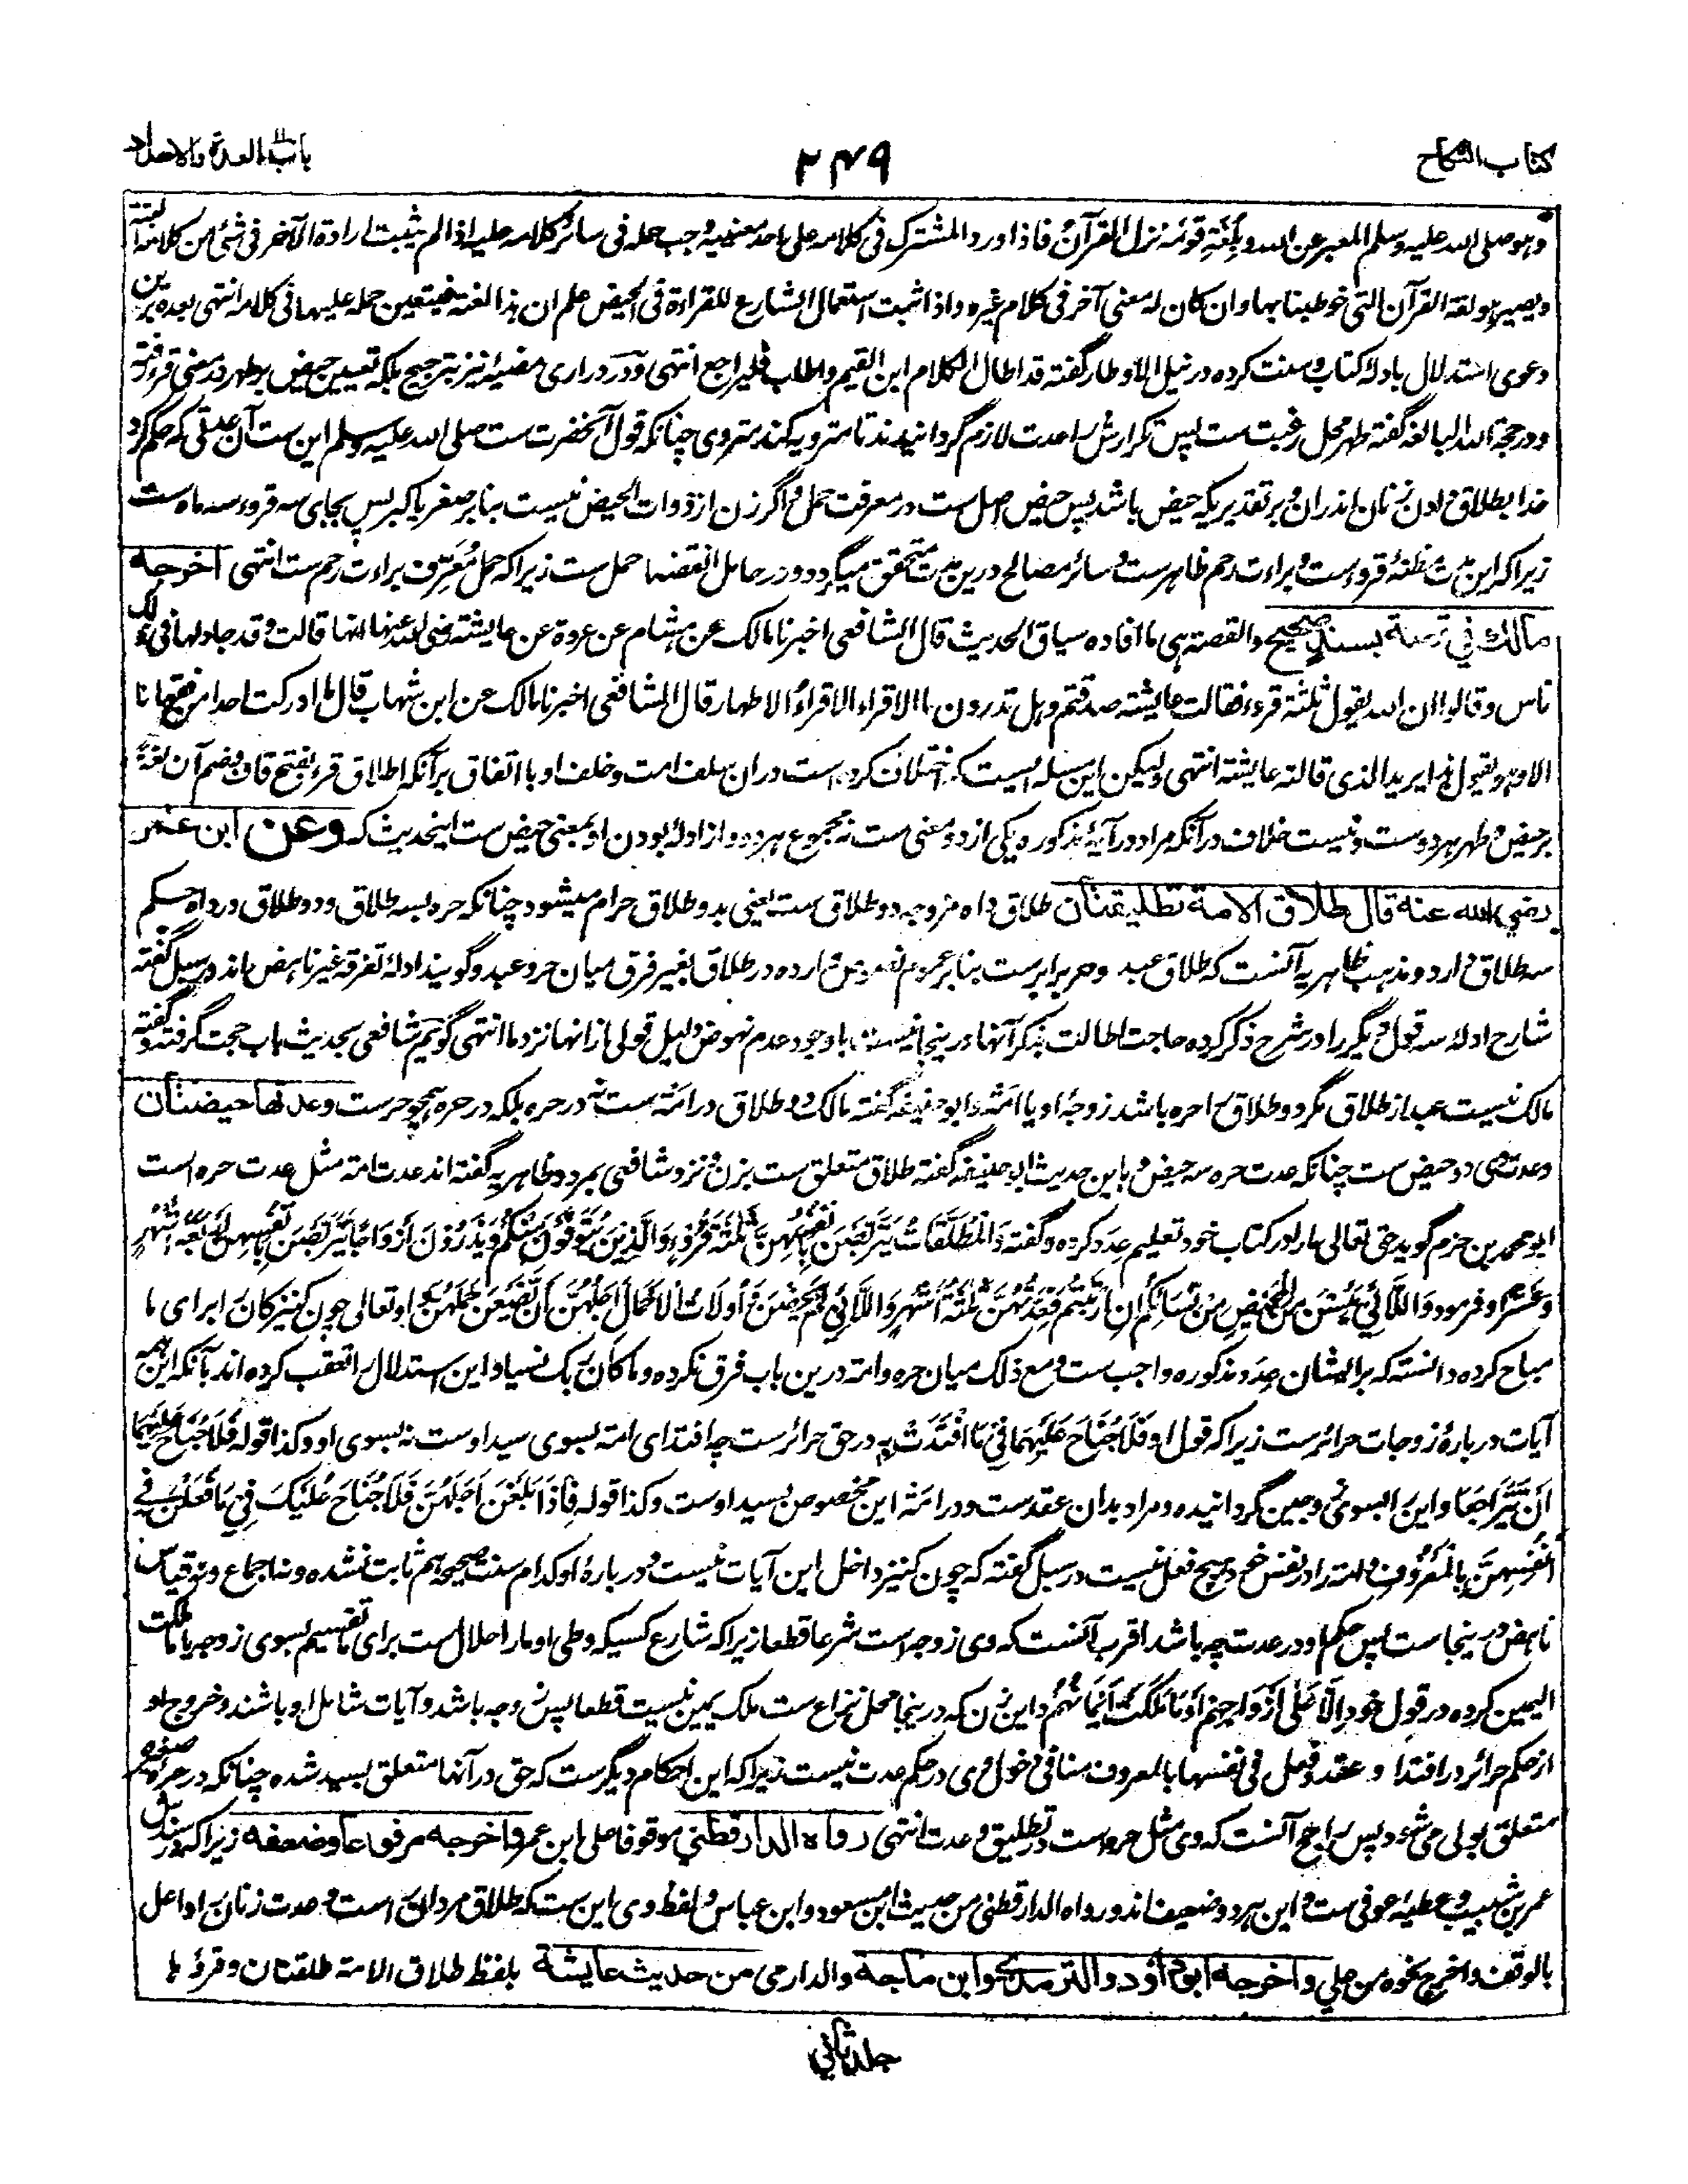 کتاب النکاح
۲۴۹
باب العدة والاحداد
وہو صلی اللہ علیہ وسلم المعبر عن اللہ وبلغۃ قومہ نزل القرآن فاذا ورد المشترک فی کلامہ علی احد معنییہ وجب حملہ فی سائر کلامہ علیہ اذا لم یثبت ارادۃ الآخر فی شئ من کلامہ البتۃ
ویصیر ہو لغۃ القرآن التی خوطبنا بہا وان کان لہ معنی آخر فی کلام غیرہ واذا ثبت استعمال الشارع للقراءۃ فی الحیض علم ان ہذا لغتہ فیتعین حملہ علیہا فی کلامہ انتہی بعدہ برین
دعوی استدلال بادلۂ کتاب و سنت کردہ در نیل الاوطار گفتہ قد اطال الکلام ابن القیم واطاب فلیراجع انتہی ودر دراری مضیئہ نیز بترجیح بلکہ تعیین حیض بر طہر در معنی قرء رفتہ
ودر حجۃ اللہ البالغہ گفتہ طہر محل رغبت ست پس تکرارش را عدت لازم گردانیدند تا مترویہ کند متروی چنانکہ قول آنحضرت ست صلی اللہ علیہ وسلم این ست آن عدتی کہ حکم کرد
خدا بطلاق دادن زنان اندران و بر تقدیریکہ حیض باشد پس حیض اصل ست در معرفت حمل و اگر زن از ذوات الحیض نیست بنا بر صغر یا کبر پس بجای سہ قروء سہ ماہ ست
زیراکہ این مدت مظنۂ قروء ست و براءت رحم ظاہر ست و سائر مصالح درین مدت متحقق میگردد و در حامل انقضا حمل ست زیراکہ حمل معرف براءت رحم ست انتہی اخرجه
مالك في قصة بسند صحيح والقصۃ ہی ما افادہ سیاق الحدیث قال الشافعی اخبرنا مالک عن ہشام عن عروۃ عن عایشۃ رضی اللہ عنہا انہا قالت وقد جادلہا فی ذلک
ناس وقالوا ان اللہ یقول ثلثۃ قروء فقالت عایشۃ صدقتم وہل تدرون ما الاقراء الاقراء الاطہار قال الشافعی اخبرنا مالک عن ابن شہاب قال ما ادرکت احدا من فقہائنا
الا وہو یقول ہذا یرید الذی قالتہ عایشۃ انتہی ولیکن این مسئلہ ایست کہ اختلاف کردہ است دران سلف امت وخلف او با اتفاق برآنکہ اطلاق قرء بفتح قاف وضم آن لغۃً
بر حیض وطہر ہر دو ست ونیست خلاف درآنکہ مراد در آیۂ مذکورہ یکی از دو معنی ست نہ مجموع ہردو واز ادلۂ بودن او بمعنی حیض ست اینحدیث کہ وعن ابن عمر
رضي الله عنه قال طلاق الامة تطليقتان طلاق داہ مزوجہ دو طلاق ست یعنی بدو طلاق حرام میشود چنانکہ حرہ بسہ طلاق ودو طلاق در داہ حکم
سہ طلاق دارد ومذہب ظاہریہ آنست کہ طلاق عبد وحر برابر ست بنا بر عموم نصوص واردہ در طلاق بغیر فرق میان حر وعبد وگویند ادلۂ تفرقہ غیر ناہض اند ودر سبل گفتہ
شارح ادلۂ سہ قول دیگر را در شرح ذکر کردہ حاجت اطالت بذکر آنہا درینجا نیست باوجود عدم نہوض دلیل قولی از انہا نزد ما انتہی گویم شافعی بحدیث باب حجت گرفتہ وگفتہ
مالک نیست عبد از طلاق مگر دو طلاق را حرہ باشد زوجۂ او یا امۃ وابو حنیفہ گفتہ مالک دو طلاق در امۃ ست نہ در حرہ بلکہ در حرہ ہمچو حر ست وعدتها حيضتان
وعدت وی دو حیض ست چنانکہ عدت حرہ سہ حیض وباین حدیث ابو حنیفہ گفتہ طلاق متعلق ست بزن ونزد شافعی بمرد وظاہریہ گفتہ اند عدت امۃ مثل عدت حرہ است
ابو محمد بن حزم گوید حق تعالی ما را در کتاب خود تعلیم عِدَد کردہ وگفتہ وَالْمُطَلَّقَاتُ یَتَرَبَّصْنَ بِاَنْفُسِہِنَّ ثَلٰثَۃَ قُرُوْءٍ وَالَّذِیْنَ یُتَوَفَّوْنَ مِنْکُمْ وَیَذَرُوْنَ اَزْوَاجًا یَتَرَبَّصْنَ بِاَنْفُسِہِنَّ اَرْبَعَۃَ اَشْہُرٍ
وَعَشْرًا وفرمود وَاللَّائِیْ یَئِسْنَ مِنَ الْمَحِیْضِ مِنْ نِسَائِکُمْ اِنِ ارْتَبْتُمْ فَعِدَّتُہُنَّ ثَلٰثَۃُ اَشْہُرٍ وَاللَّائِیْ لَمْ یَحِضْنَ وَاُولَاتُ الْاَحْمَالِ اَجَلُہُنَّ اَنْ یَّضَعْنَ حَمْلَہُنَّ واو تعالی چون کنیزکان را برای ما
مباح کردہ دانستہ کہ بر ایشان عِدَد مذکورہ واجب ست ومع ذلک میان حرہ وامۃ درین باب فرق نکردہ وما کان ربک نسیا واین استدلال را تعقب کردہ اند بآنکہ این ہمہ
آیات دربارۂ زوجات حرائر ست زیراکہ قول او فَلَا جُنَاحَ عَلَیْہِمَا فِیْمَا افْتَدَتْ بِہٖ در حق حرائر ست چہ افتدای امۃ بسوی سید اوست نہ بسوی او وکذا قولہ فَلَا جُنَاحَ عَلَیْہِمَا
اَنْ یَّتَرَاجَعَا واین را بسوی زوجین گردانیدہ ومراد بدان عقد ست ودر امۃ این مخصوص بسید اوست وکذا قولہ فَاِذَا بَلَغْنَ اَجَلَہُنَّ فَلَا جُنَاحَ عَلَیْکَ فِیْ مَا فَعَلْنَ فِیْ
اَنْفُسِہِنَّ بِالْمَعْرُوْفِ وامۃ را در نفس خود ہیچ فعل نیست در سبل گفتہ کہ چون کنیز داخل این آیات نیست ودربارۂ او کدام سنت صحیحہ ہم ثابت نشدہ ونہ اجماع ونہ قیاس
ناہض درینجاست پس حکم او در عدت چہ باشد اقرب آنست کہ وی زوجہ است شرعا قطعا زیراکہ شارع کسیکہ وطی او ما را حلال ست برای ما تقسیم بسوی زوجہ یا ما ملکت
الیمین کردہ در قول خود اِلَّا عَلٰی اَزْوَاجِہِمْ اَوْ مَا مَلَکَتْ اَیْمَانُہُمْ واین زن کہ درینجا محل نزاع ست ملک یمین نیست قطعا پس زوجہ باشد وآیات شامل او باشند وخروج او
از حکم حرائر در افتدا و عقد وفعل فی نفسہا بالمعروف منافی دخول وی در حکم عدت نیست زیراکہ این احکام دیگر ست کہ حق در آنہا متعلق بسید شدہ چنانکہ در حرۂ صغیرہ
متعلق بولی می شود پس راجح آنست کہ وی مثل حرہ است در تطلیق وعدت انتہی رواه الدارقطني موقوفا علی ابن عمر واخرجه مرفوعا وضعفه زیراکہ در سندش
عمر بن شبیب وعطیۂ عوفی ست واین ہر دو ضعیف اند ورواہ الدارقطنی من حدیث ابن مسعود وابن عباس ولفظ وی این ست کہ طلاق مردان را است وعدت زنان را واعل
بالوقف واخرج نحوہ من علی واخرجه ابو داؤد والترمذي وابن ماجة والدارمی من حدیث عایشة بلفظ طلاق الامۃ طلقتان وقرؤہا
جلد ثانی